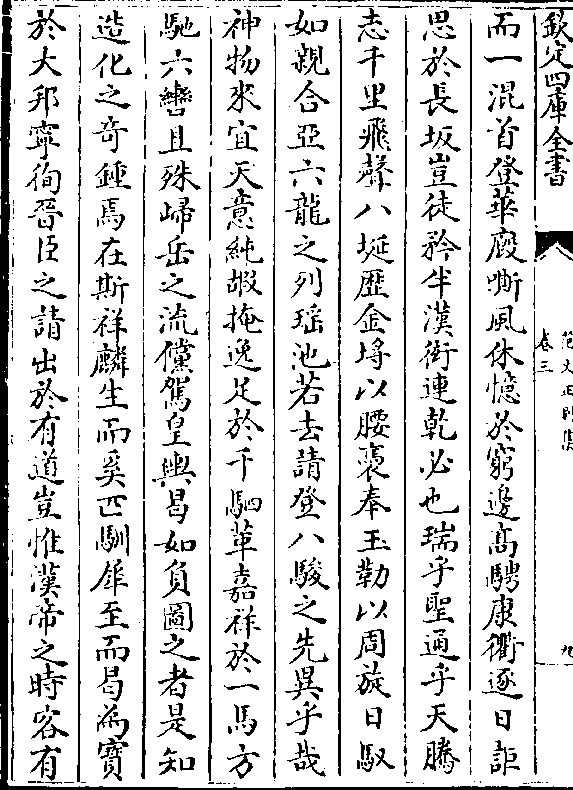 欽定四庫全書
范文正別集
卷三
九
而一混首登華廏嘶風休憶於窮邊高騁康衢逐日詎
思於長坂豈徒矜半漢銜連乾必也瑞乎聖通乎天騰
志千里飛聲八埏歴金埓以腰褭奉玉勒以周旋日馭
如親合亞六龍之列瑶池若去請登八駿之先異乎哉
神物來宜天意純嘏掩逸足於千駟萃嘉祥於一馬方
馳六轡且殊歸岳之流儻駕皇輿曷如負圖之者是知
造化之竒鍾焉在斯祥麟生而奚匹馴犀至而曷為寳
於大邦寧徇晉臣之請出於有道豈惟漢帝之時客有